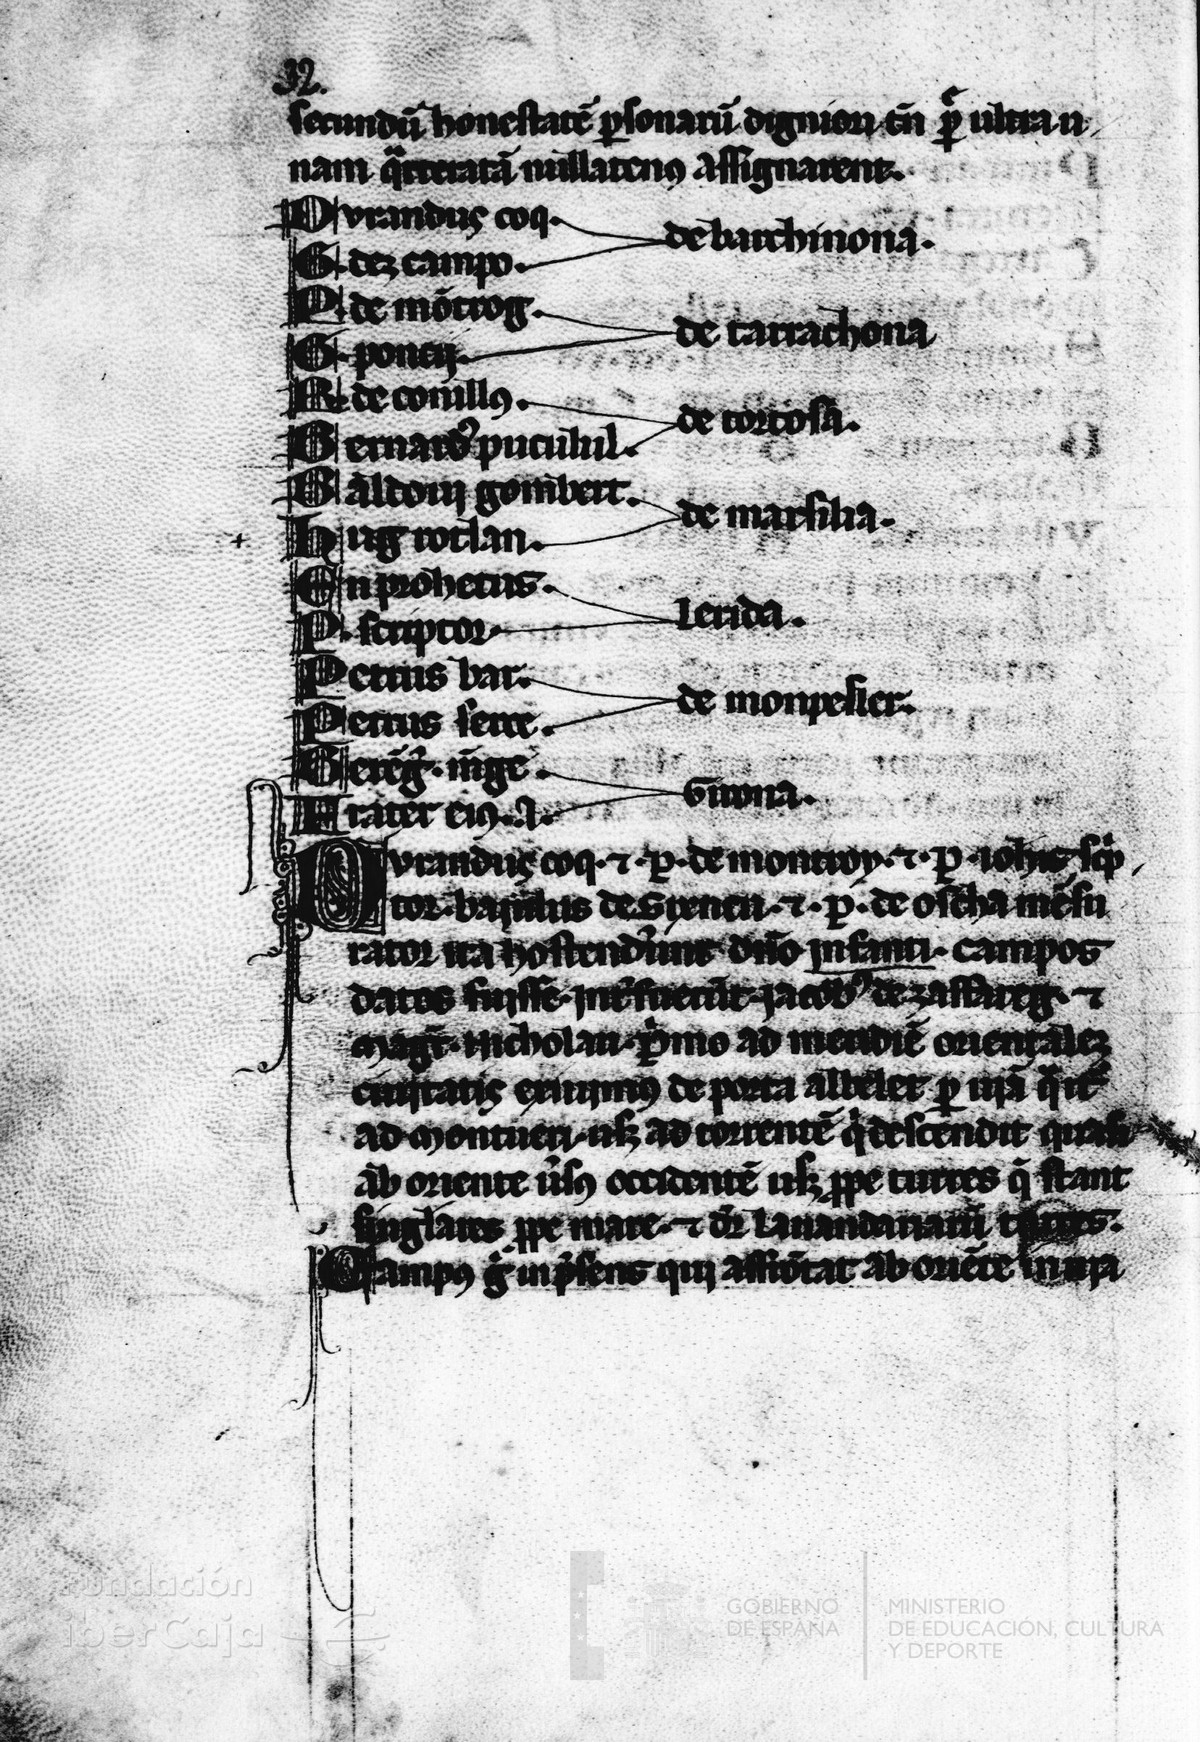 32.
secundũ honestatẽ ꝑsonarũ dignior cũ ultra u
nam q̃rteratã nullatenꝰ assignarent.
Durandus coq. de barchinona.
G. dez campo.
P. de mõtrog. de tarrachona
G. poncij.
R. de conillꝰ. de tortosa.
Bernardꝰ puculuil.
Baldoui gombert. de marsilia.
hug rotlan.
En prohetus. Lerida.
P. scriptor
Petrus bar. de monpeslier.
Petrus serre.
Berẽg̃. mge. Girona.
Frater eiꝰ. A.
Durandus coq. ⁊ P. de montroy. ⁊ P. iohis scp̃
tor. baiulus de Sixena. ⁊ P. de oscha mẽsu
rator ita hostenderunt dño infanti. campos
datos fuisse. Jnterfuerũt. jacobꝰ de zaffareg. ⁊
magr̃. Nicholau. p̃mo ad meridiẽ orientalez
ciuitatis exiuimꝰ de porta albelet ꝑ uiã q̃ it
ad Montueri. usqꝫ ad torrentẽ q̃ descendit quasi
ab oriente ũsꝰ occidentẽ usqꝫ ꝓpe turres q̃ stant
singlares ꝓpe mare. ⁊ dr̃ Lauandariarũ
Campꝰ g̊ in p̃sens qui affrõtat ab oriẽte in uia
Fundación
iberCaja
GOBIERNO
DE ESPAÑA
MINISTERIO
DE EDUCACIÓN, CULTURA
Y DEPORTE